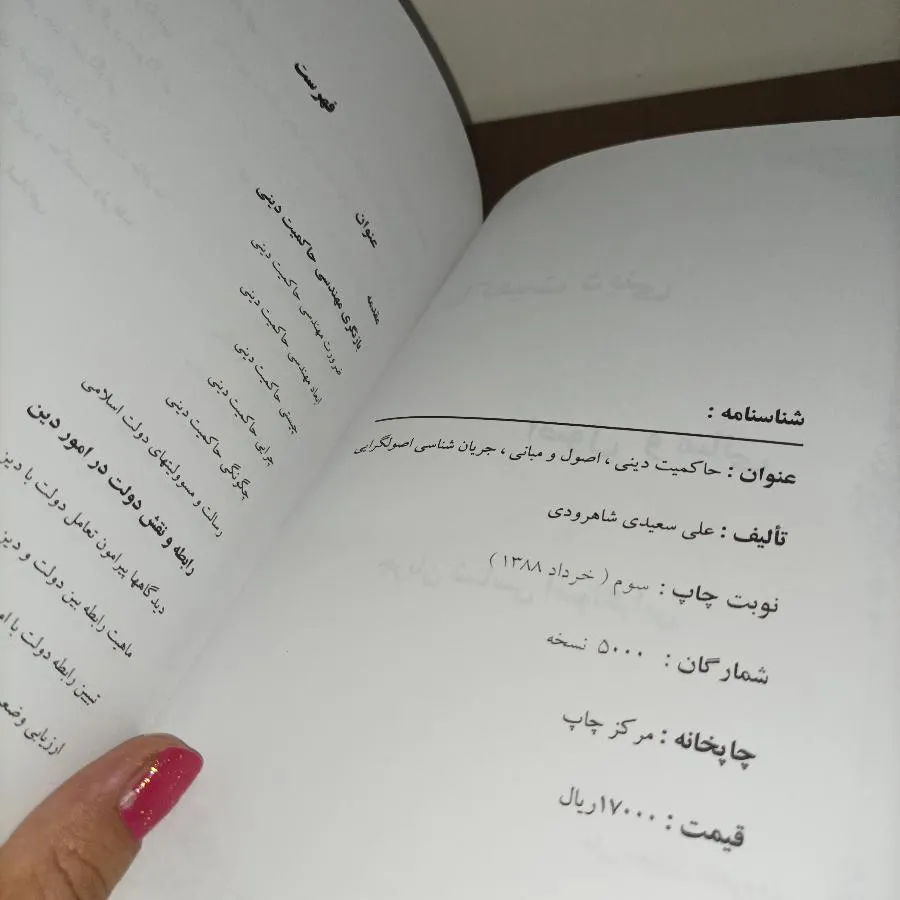 شناسنامه :
عنوان : حاکمیت دینی ، اصول و مبانی ، جریان شناسی اصولگرایی
تألیف : علی سعیدی شاهرودی
نوبت چاپ : سوم ( خرداد ۱۳۸۸ )
شمارگان : ۵۰۰۰ نسخه
چاپخانه : مرکز چاپ
قیمت : ۱۷۰۰۰ریال
فهرست
عنوان
مقدمه
بازنگری مهندسی حاکمیت دینی
ضرورت مهندسی حاکمیت دینی
ابعاد مهندسی حاکمیت دینی
چیستی حاکمیت دینی
چرایی حاکمیت دینی
چگونگی حاکمیت دینی
رسالت و مسوولیتهای دولت اسلامی
رابطه و نقش دولت در امور دین
دیدگاهها پیرامون تعامل دولت با دین
ماهیت رابطه بین دولت و دین
تبیین رابطه دولت با
ارزیابی